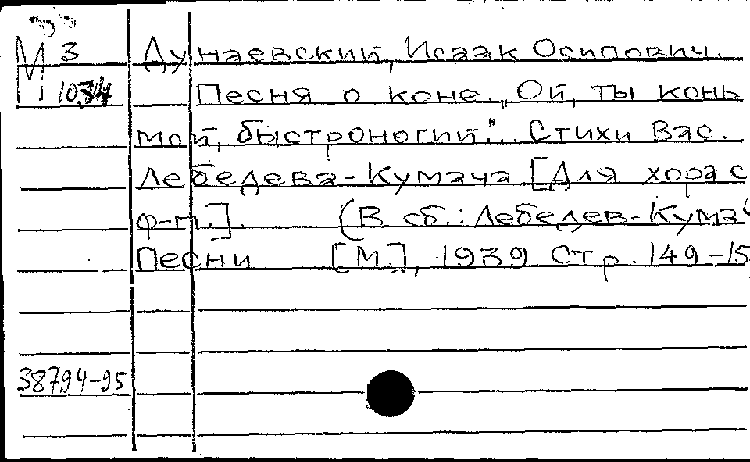 М 3 Дунаевский, Исаак Осипович.
1034 Песня о коне. „Ой, ты конь
мой, быстроногий." Стихи Вас.
Лебедева-Кумача [Для хора с
ф-п.]. (В сб.: Лебедев-Кумач
Песни [М.], 1939 Стр. 149-15
38794-95